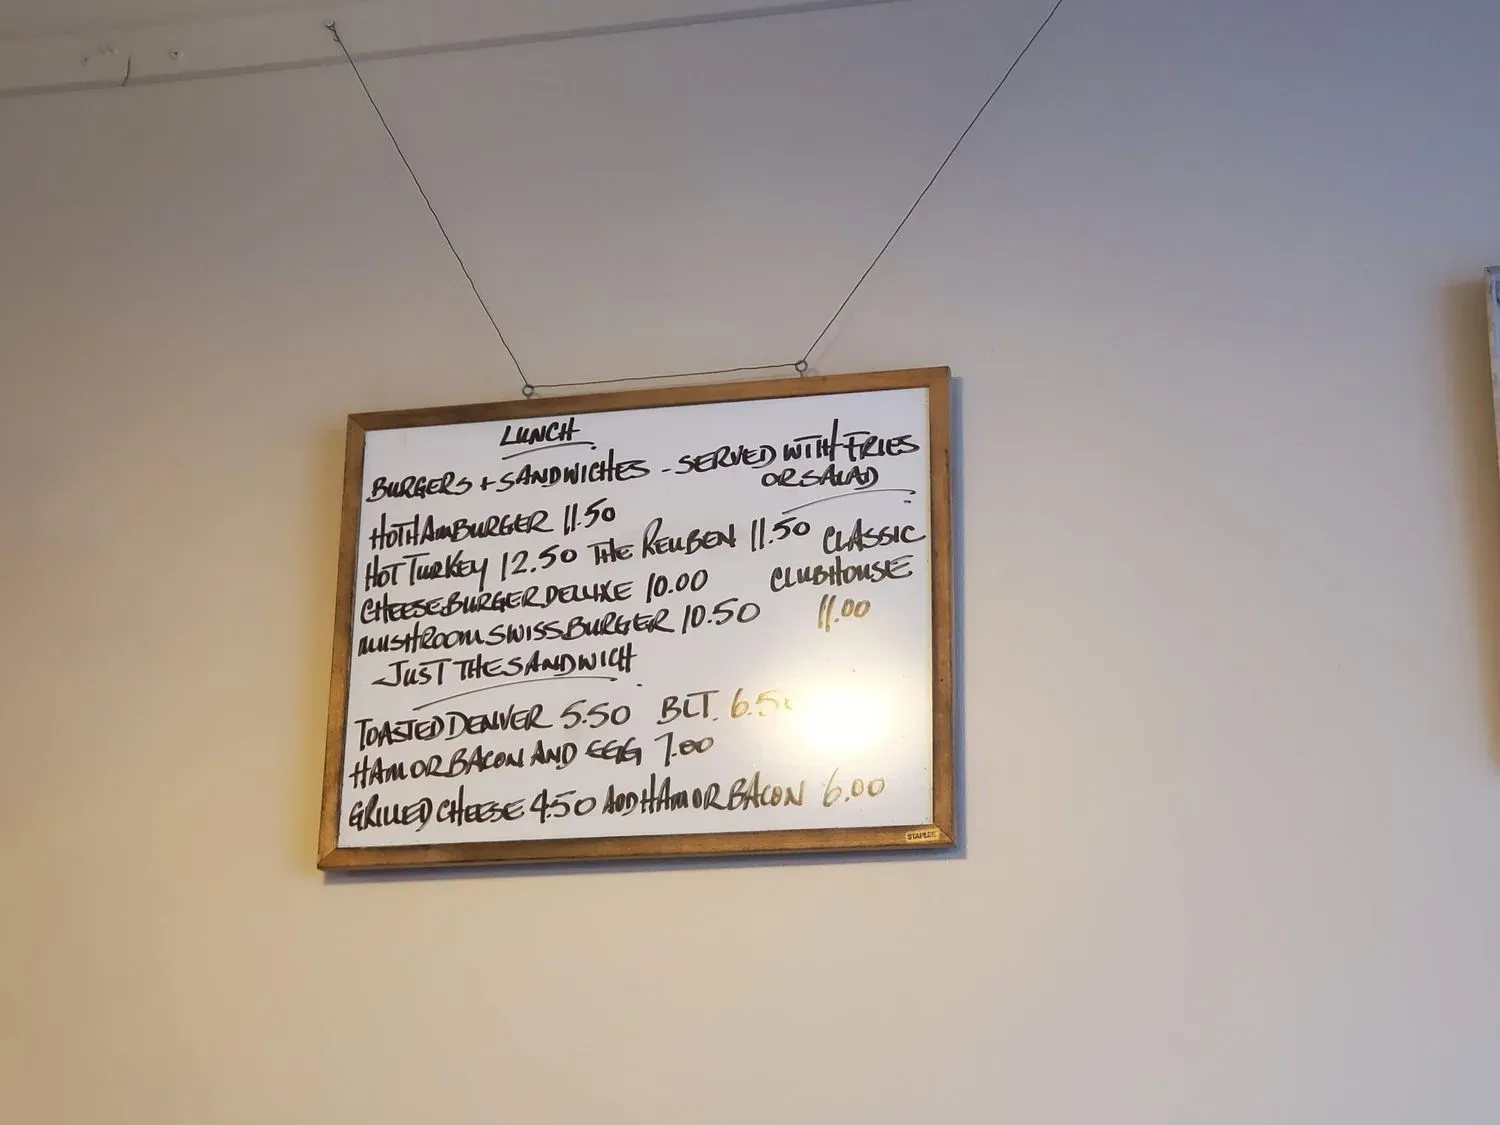 LUNCH
BURGERS + SANDWICHES - SERVED WITH FRIES
OR SALAD
HOT HAMBURGER 11.50
HOT TURKEY 12.50 THE REUBEN 11.50 CLASSIC
CLUBHOUSE
CHEESEBURGER DELUXE 10.00
MUSHROOM SWISS BURGER 10.50 11.00
- JUST THE SANDWICH
TOASTED DENVER 5.50 BLT. 6.50
HAM OR BACON AND EGG 7.00
GRILLED CHEESE 4.50 ADD HAM OR BACON 6.00
STAPLES